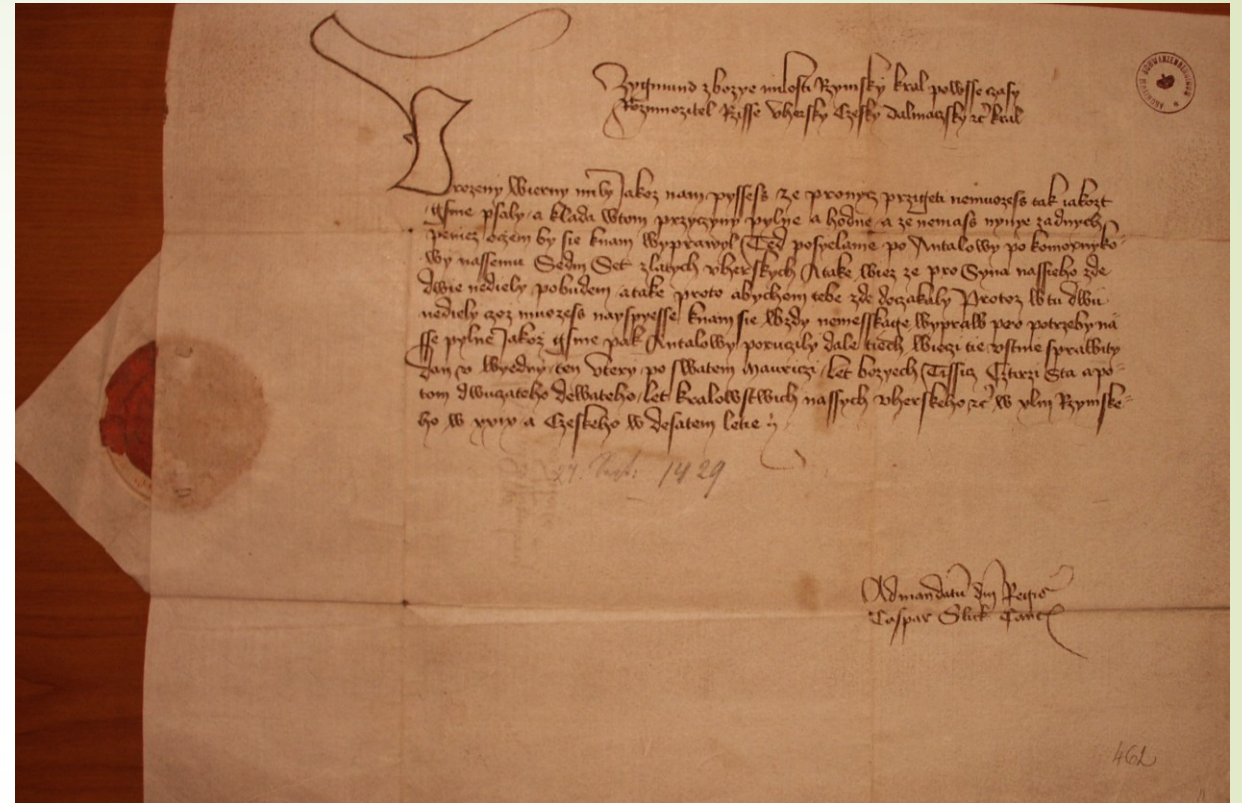 Zygmund z bozye milosti Rzimsky kral powsse czasy
Rozmnozitel Rzisse Vhersky Czesky Dalmaczsky zc kral
Vrozeny Wierny mily Jakoz nam pyssess ze pronycz przigeti nemuozess tak iakozt
gsme psaly a klada wtom przyczyny pylne a hodne a ze nemass nynye zadnych
peniez oczem by sie knam wyprawyl Ted posyelame po Antalowy po komornyko-
wy nassemu Sedm Set zlatych vherskych A take wiez ze pro Syna nassieho zde
dwie nediely pobudem a take proto abychom tebe zde doczakaly Protoz W tu dwu
nediely czoz muozess nayspyesse knam sie Wzdy nemesskage wypraw pro potrzeby na-
sse pylne Jakoz gsme pak Antalowy poruczily dale tiech Wieczi tie vstnie sprawity
Dan v Wyedny ten Vtery po swatem Mauriczi Let bozyech Tissicz Cztirzi Sta a po-
tom dwuczateho dewateho let kralowstwich nassych vherskeho zc w xlm Rzymske-
ho w xxix a Czeskeho W desatem letie
27. Sept: 1429
Ad mandatu dni Regis
Caspar Slick Canc
462